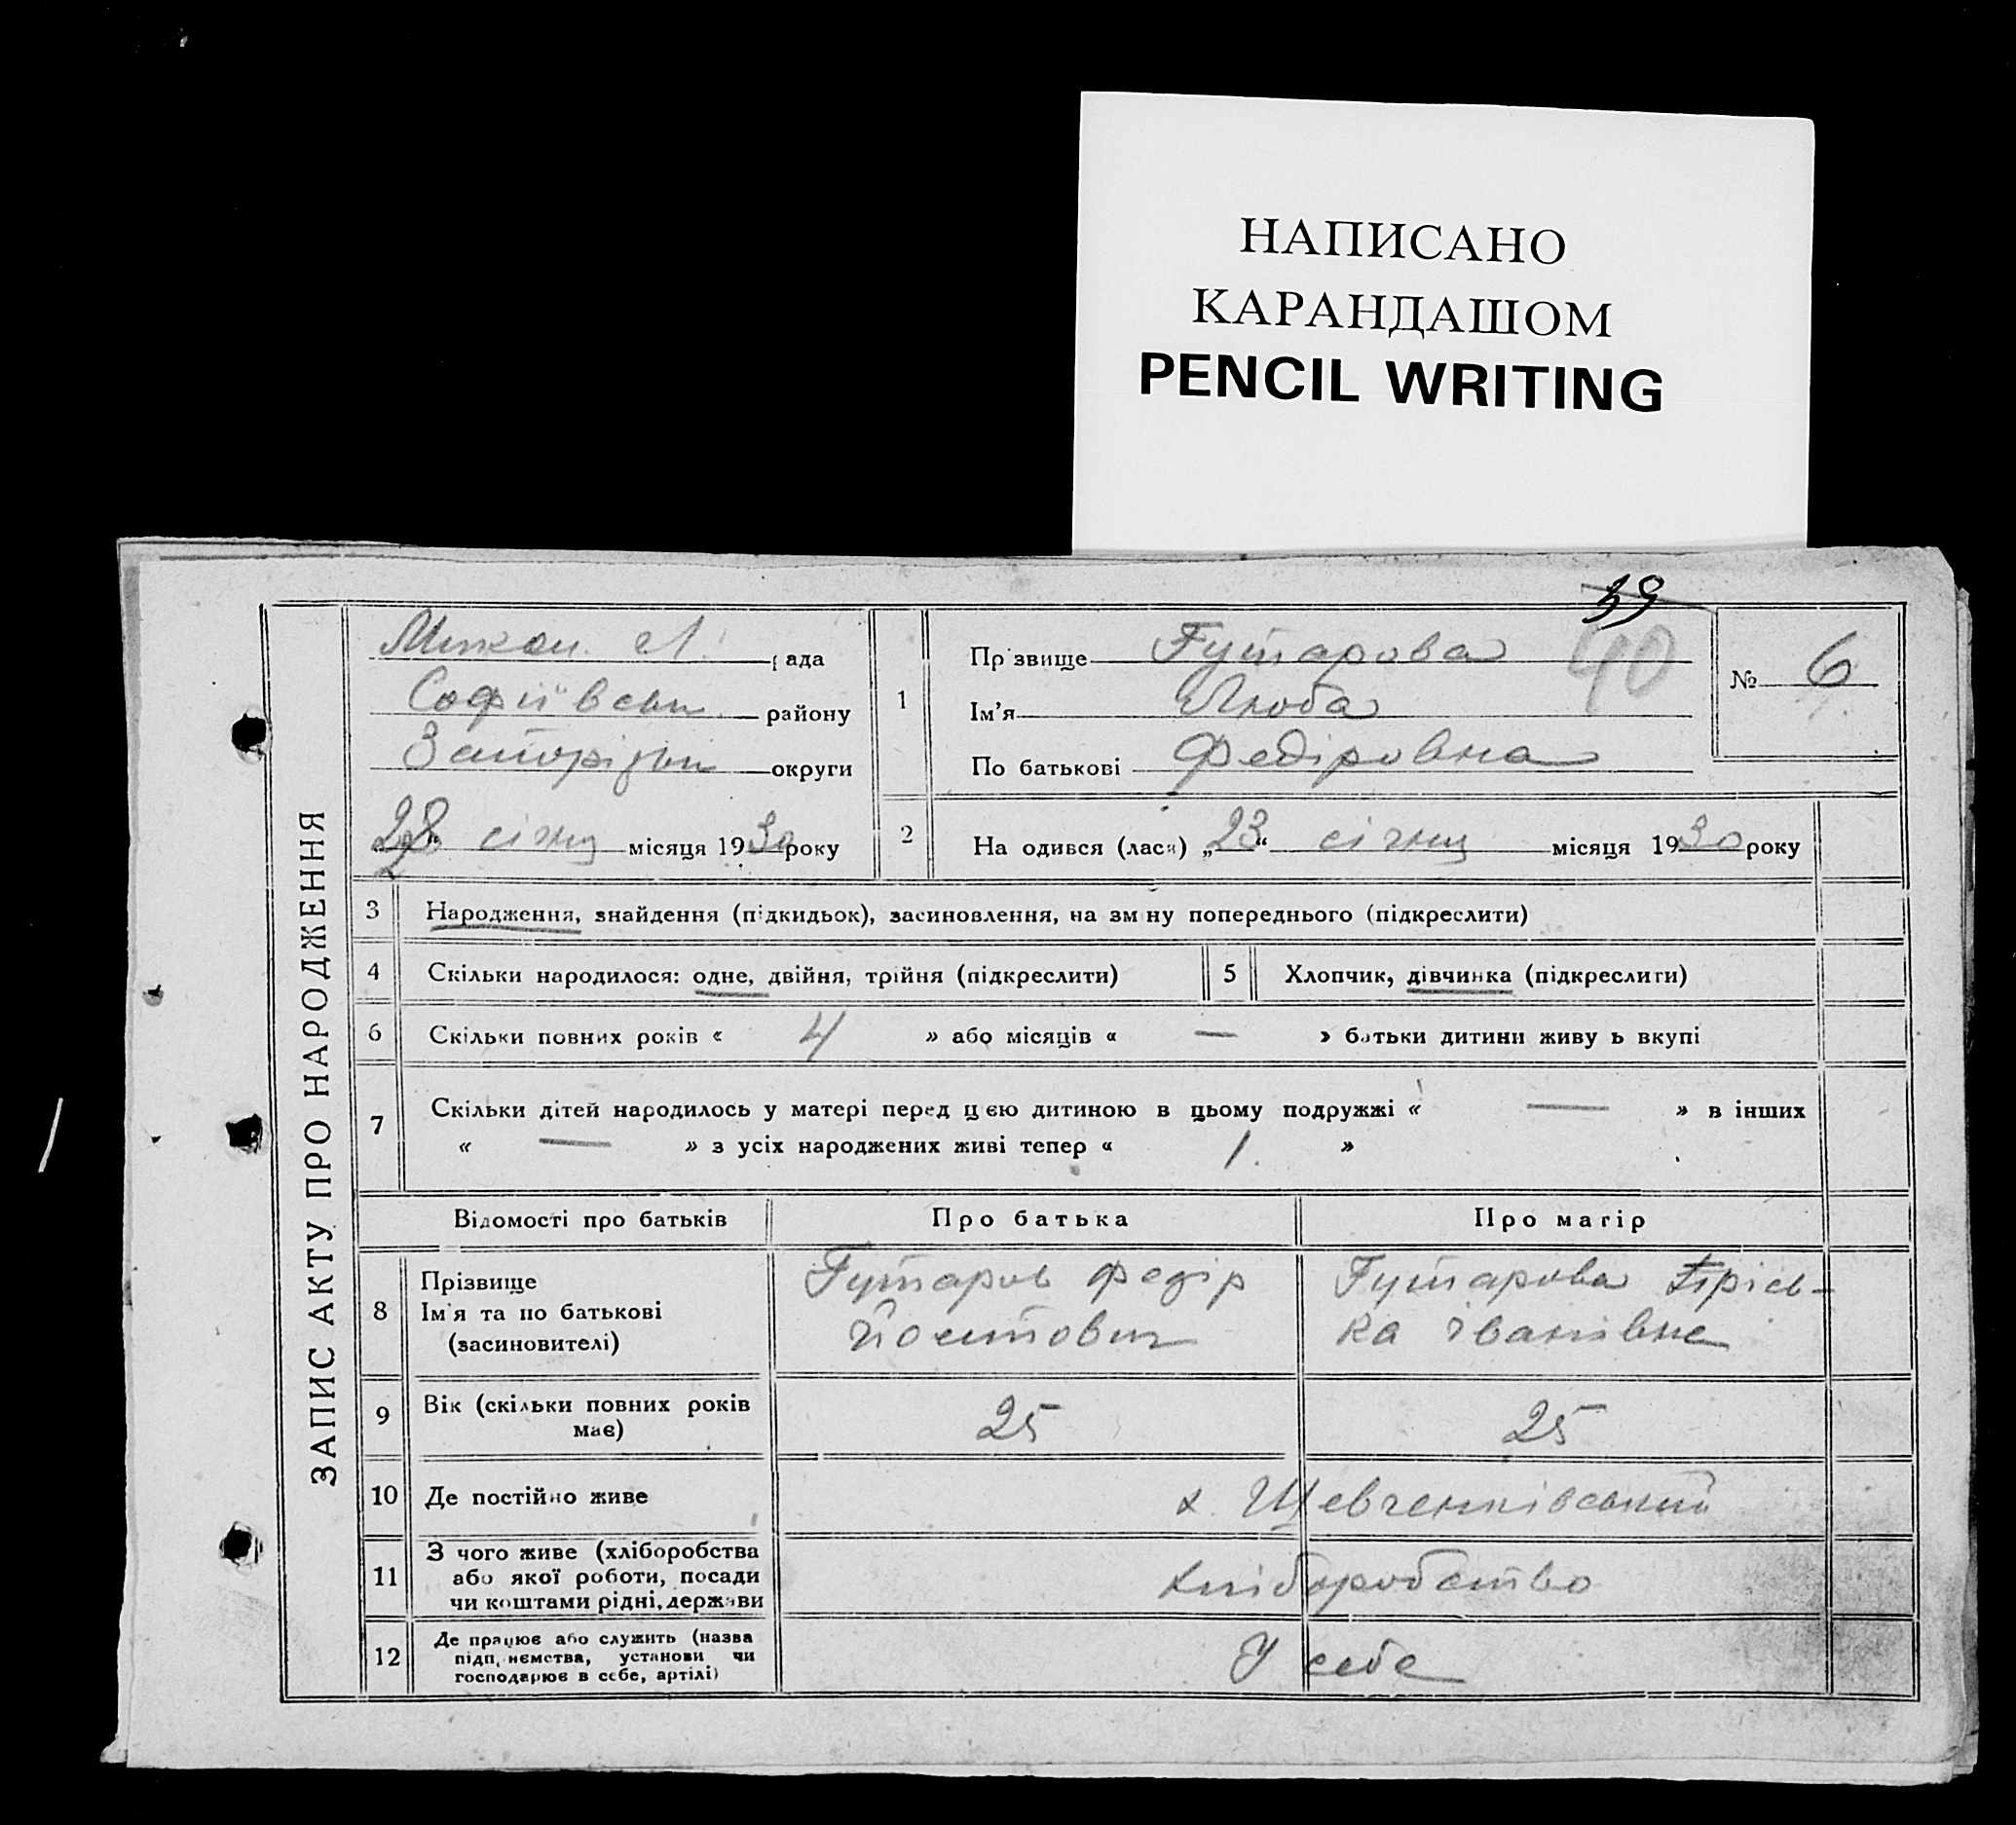 НАПИСАНО
КАРАНДАШОМ
PENCIL WRITING
39
40
ЗАПИС АКТУ ПРО НАРОДЖЕННЯ
рада
Софіївськ. району
Запорізьк округи
28 січня місяця 1930 року
1
Прізвище Гутарова
Ім'я Люба
По батькові Федіровна
№ 6
2 На одився (лася) „23“ січня місяця 1930 року
3 Народження, знайдення (підкидьок), засиновлення, на зміну попереднього (підкреслити)
4 Скільки народилося: одне, двійня, трійня (підкреслити) 5 Хлопчик, дівчинка (підкреслити)
6 Скільки повних років « 4 » або місяців « — » батьки дитини живуть вкупі
7 Скільки дітей народилось у матері перед цією дитиною в цьому подружжі « — » в інших
« — » з усіх народжених живі тепер « 1. »
Відомості про батьків Про батька Про матір
8 Прізвище
Ім'я та по батькові
(засиновителі)
Гутаров Федір
Гутарова Пріс-
ка Іванівна
9 Вік (скільки повних років
має)
25 25
10 Де постійно живе х. Шевченківський
11 З чого живе (хліборобства
або якої роботи, посади
чи коштами рідні, держави
хліборобство
12 Де працює або служить (назва
підприємства, установи чи
господарює в себе, артілі)
У себе